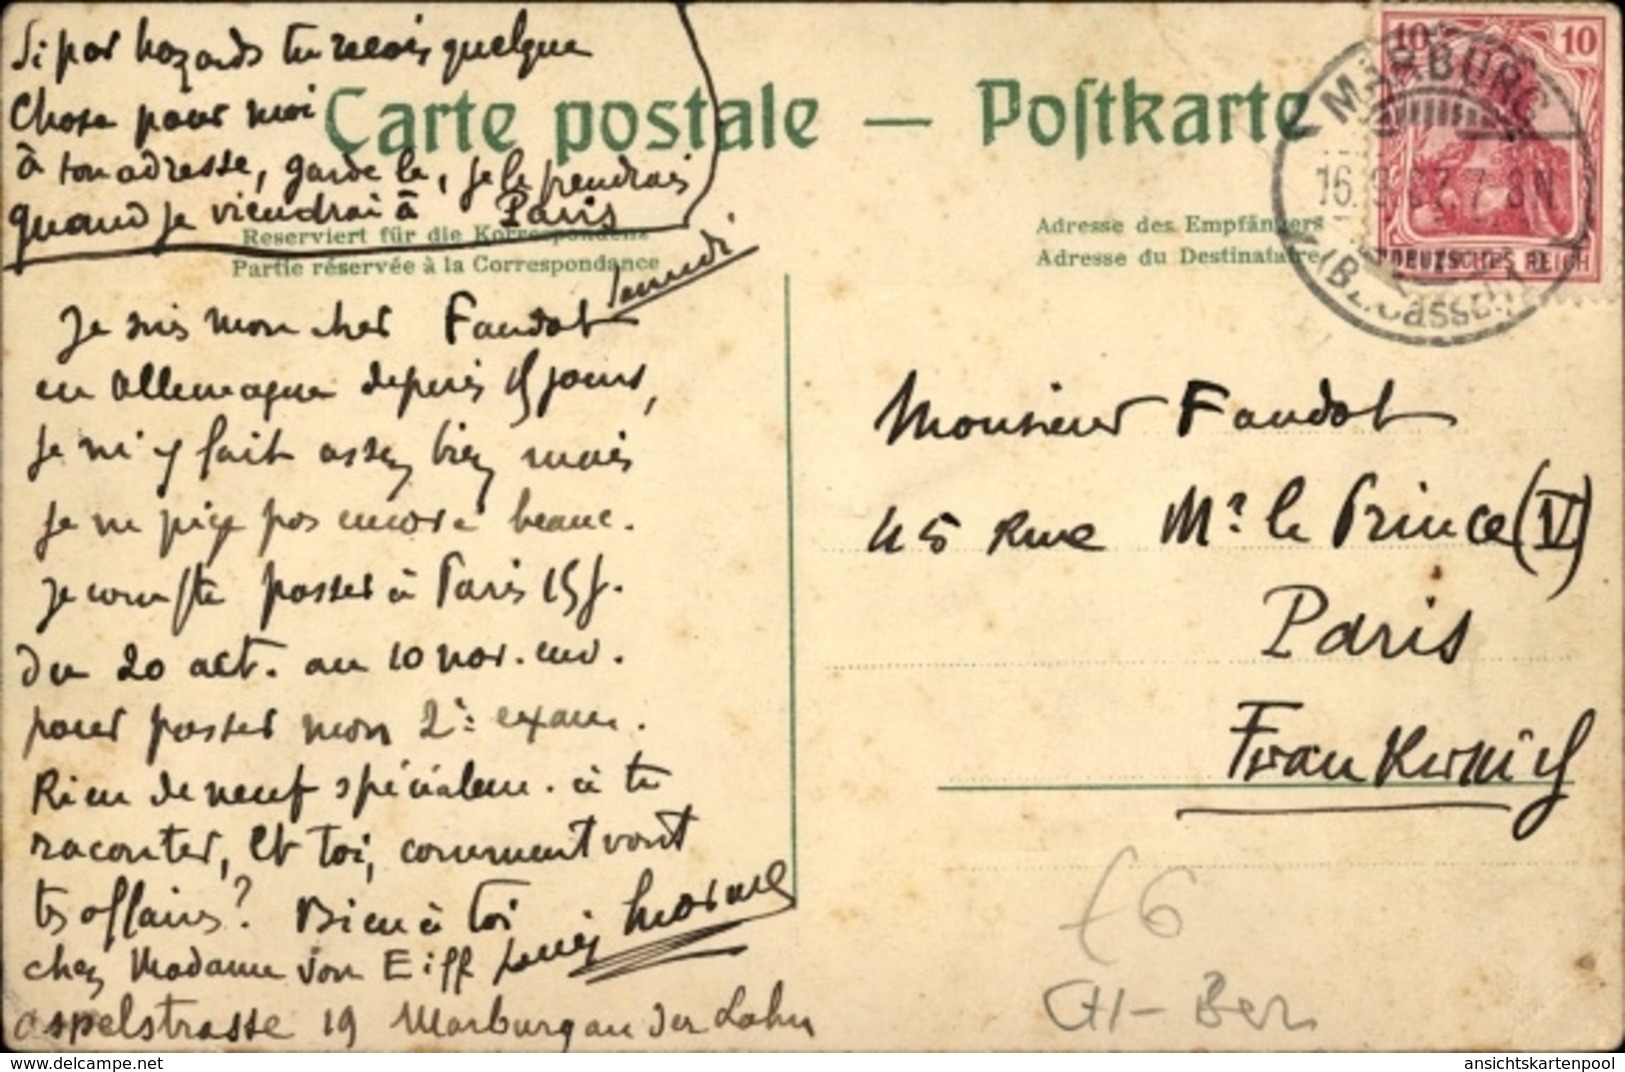 Si par hazards tu recois quelque
chose pour moi
à ton adresse, garde le, je le prendrais
quand je viendrai à Paris
Carte postale — Postkarte
Reserviert für die Korrespondenz
Partie réservée à la Correspondance
Adresse des Empfängers
Adresse du Destinataire
lundi
Je suis mon cher Faudot
en Allemagne depuis 15 jours,
je m'y fait assez bien mais
je ne pige pas encore beauc.
je compte passer à Paris 15 j.
du 20 oct. au 10 nov. env.
pour passer mon 2e exam.
Rien de neuf spécialem. à te
raconter, et toi, comment vont
tes affaires? Bien à toi
Louis
chez Madame von Eiff
Ospelstrasse 19 Marburg an der Lahn
10 10
DEUTSCHES REICH
MARBURG
16. 9. 07. 7-8N
(Bz. Cassel)
Monsieur Faudot
45 Rue Mr le Prince (VI)
Paris
Frankreich
16
CH-Ber
ansichtskartenpool